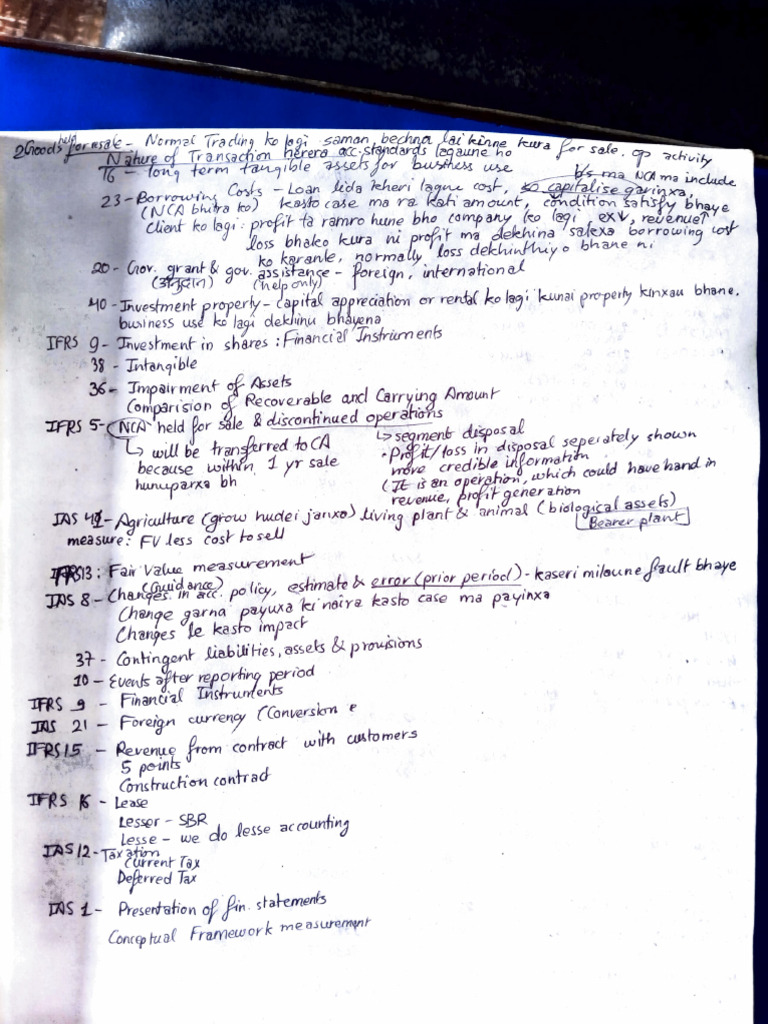 2 Goods held for resale - Normal Trading ko lagi saman bechna lai kinne kura for sale. op activity
Nature of Transaction herera acc. standards lagaune ho
16 - long term tangible assets for business use
b/s ma NCA ma include
23 - Borrowing Costs - Loan lida kheri lagne cost, so capitalise garinxa,
(NCA bhitra ko) kasto case ma ra kati amount, condition satisfy bhaye
client ko lagi : profit ta ramro hune bho company ko lagi ex↓, revenue↑
loss bhako kura ni profit ma dekhina sakxa borrowing cost
ko karanle, normally loss dekhinthiyo bhane ni
20 - Gov. grant & gov. assistance - foreign, international
(अनुदान) (help only)
40 - Investment property - capital appreciation or rental ko lagi kunai property kinxau bhane.
business use ko lagi dekhinu bhayena
IFRS 9 - Investment in shares : Financial Instruments
38 - Intangible
36 - Impairment of Assets
Comparision of Recoverable and Carrying Amount
IFRS 5 - NCA held for sale & discontinued operations
↳ will be transferred to CA
because within 1 yr sale
hunuparxa bh
↳ segment disposal
• Profit/loss in disposal seperately shown
more credible information
(It is an operation, which could have hand in
revenue, profit generation
IAS 41 - Agriculture (grow hudei janxa) living plant & animal (biological assets)
Bearer plant
measure: FV less cost to sell
IFRS 13 : Fair Value measurement
(Guidance)
IAS 8 - Changes in acc. policy, estimate & error (prior period) - kaseri milaune fault bhaye
Change garna payuxa ki naira kasto case ma payinxa
Changes le kasto impact
37 - Contingent liabilities, assets & provisions
10 - Events after reporting period
IFRS 9 - Financial Instruments
IAS 21 - Foreign currency (Conversion
IFRS 15 - Revenue from contract with customers
5 points
Construction contract
IFRS 16 - Lease
Lesser - SBR
Lesse - we do lesse accounting
IAS 12 - Taxation
Current Tax
Deferred Tax
IAS 1 - Presentation of fin. statements
Conceptual Framework measurement